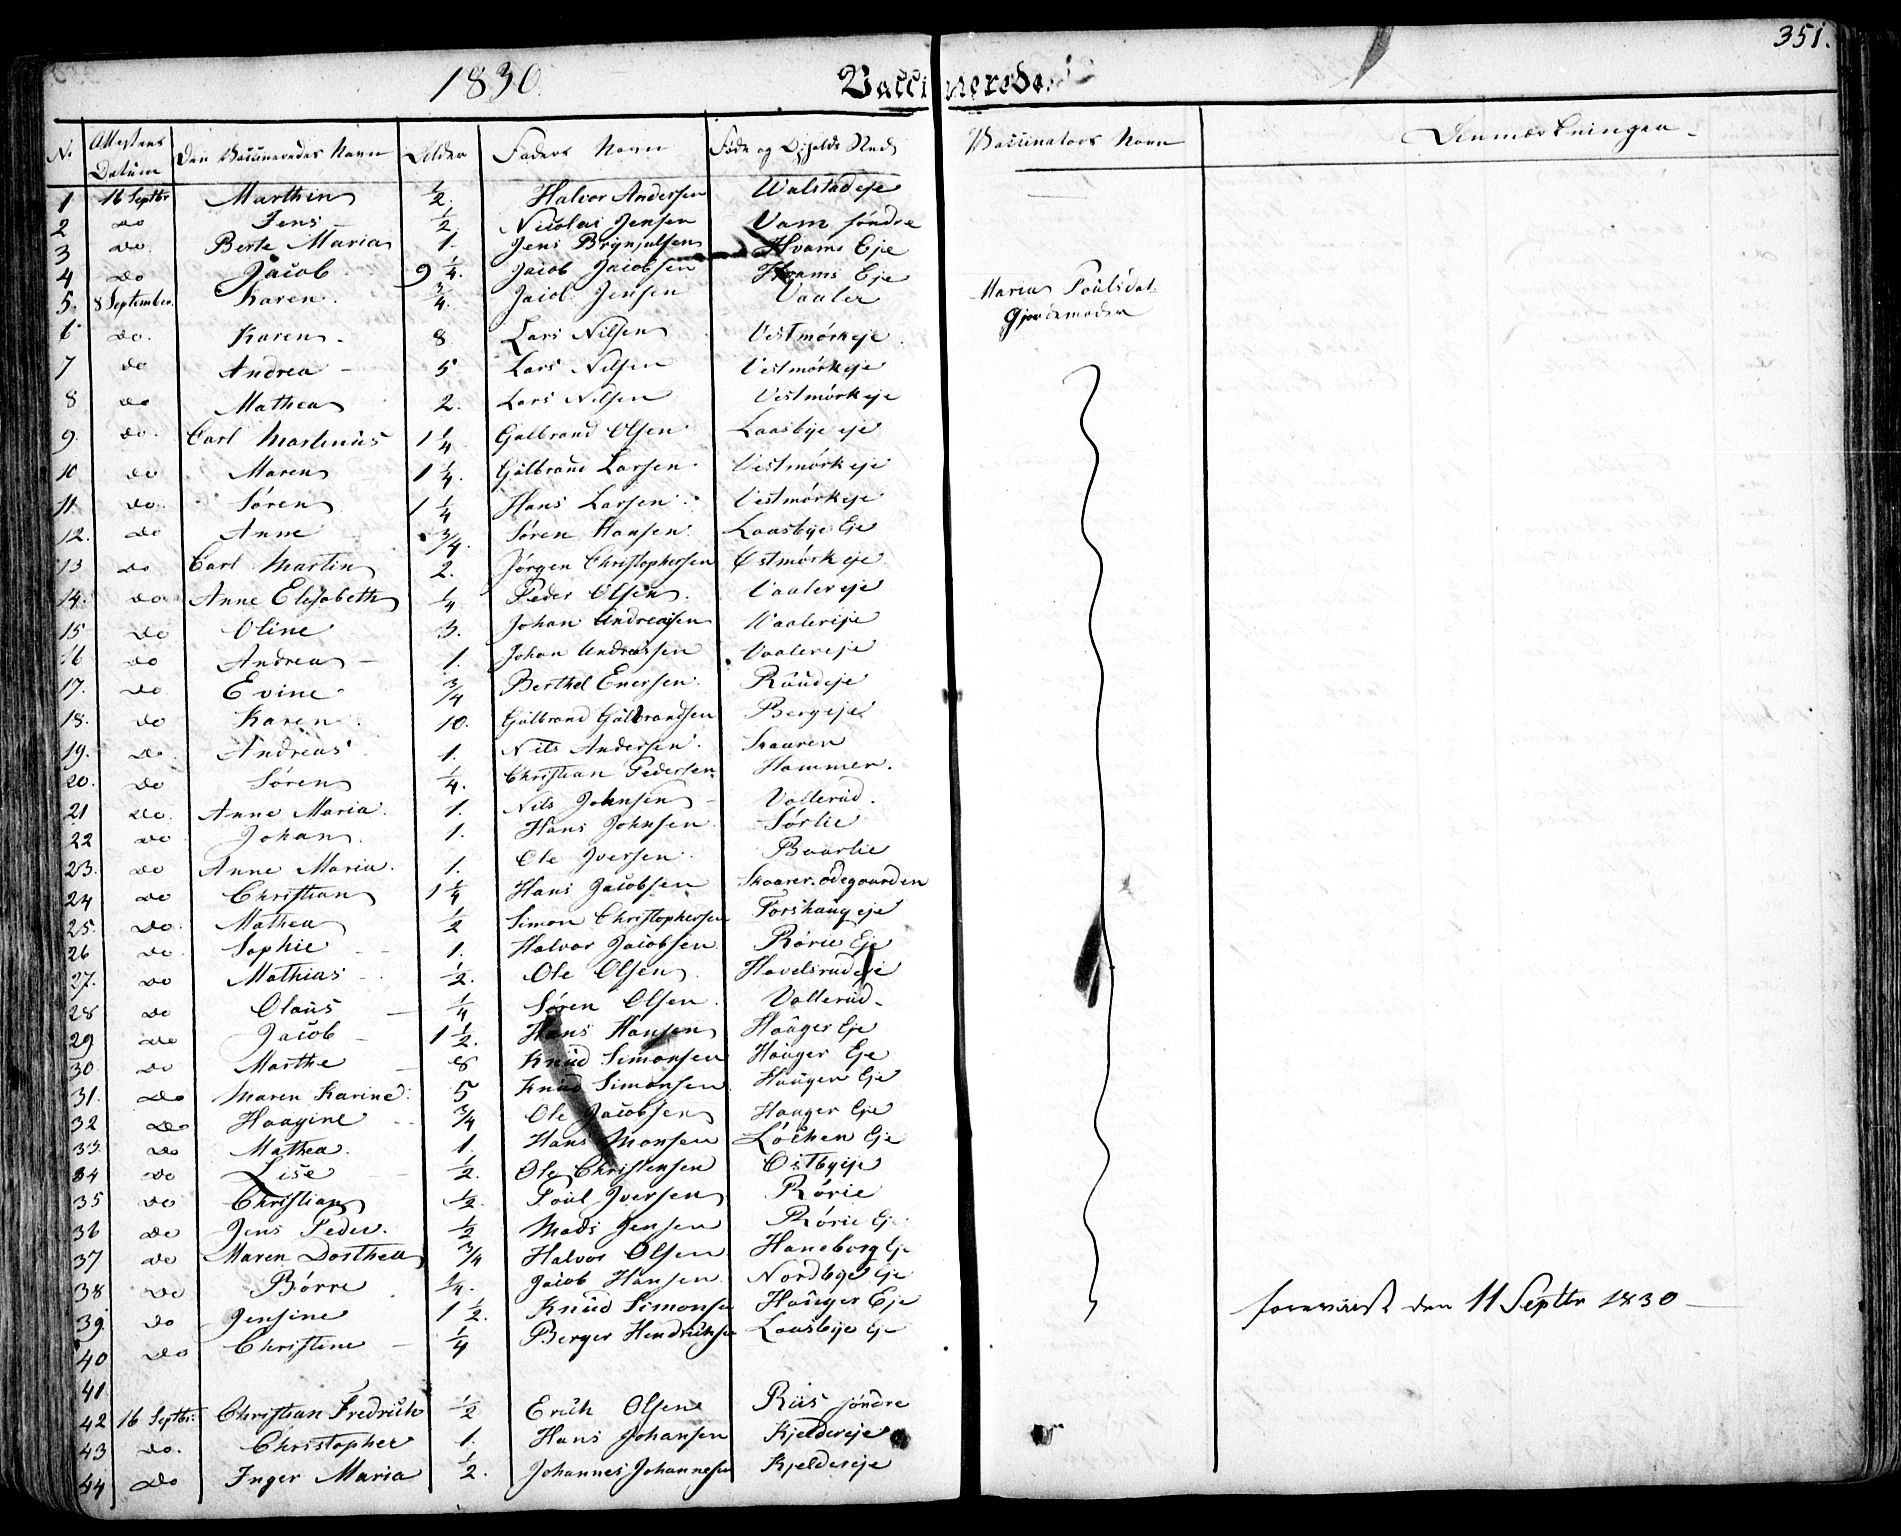 351.
1830. Vaccinerede.
No Attestens Datum Den Vaccineredes Navn Alder Faders Navn Føde og Opholds Sted Vaccinators Navn Anmærkninger
1 16 Septbr Marthin ½ Halvor Andersen Walstadeje
2 do Jens ½ Nicolai Jensen Vam søndre
3 do. Berte Maria 1. Jens Brynjulsen Hvams Eje
4 do Jacob 9¼. Jacob Jacobsen Hvams Eje
5. 8 September. Karen. ¾. Jacob Jensen Vaaler Maren Poulsdat. Gjordemoder
6 do. Karen. 8 Lars Nilsen Vestmørkeje.
7 do Andrea 5 Lars Nilsen Vestmørkeje
8 do Mathea 2. Lars Nilsen Vestmørkeje
9. do. Carl Martinus 1¼ Gulbrand Olsen Laasbye eje
10 do Maren 1¼. Gulbrand Larsen Vestmørkeje
11 do. Søren 1¼ Hans Larsen Vestmørkeje
12. do Anne ¾. Søren Hansen Laasbye Eje
13 do Carl Martin 2. Jørgen Christophersen Østmørkeje
14. do Anne Elisabeth ¼ Peder Olsen. Vaalereje
15 do Oline 3. Johan Andreasen Vaalereje
16 do Andrea 1. Johan Andreasen Vaalereje
17. do Evine ¾ Berthel Enersen. Ruudeje
18. do Karen. 10. Gulbrand Gulbrandsen Bergeje
19. do. Andreas 1. Nils Andersen. Skaaren
20. do Søren ¼. Christian Pedersen Hammer.
21 do. Anne Maria. 1. Nils Johnsen Vallerud.
22 do Johan. 1. Hans Johnsen Sørlie
23. do Anne Maria. 1. Ole Iversen. Baarlie
24 do Christian 1¼ Hans Jacobsen Skaarer ødegaarden
25. do. Mathea ½ Simon Christophersen Forshaugeje
26 do. Sophie 1. Halvor Jacobsen Rørie Eje
27. do Mathias ½. Ole Olsen. Havelsrudeje
28 do Olaus ¼ Søren Olsen. Vallerud.
29 do Jacob 1½. Hans Hansen Hauger Eje
30 do Marthe 8 Knud Simonsen Hauger Eje
31. do Maren Karine. 5 Knud Simonsen Hauger Eje
32 do Haagine ¾ Ole Jacobsen Hauger Eje
33. do Mathea. 1. Hans Monsen Løchen Eje
34 do Lise ½. Ole Christensen Østbyeje
35 do Christian ½ Poul Iversen Rørie
36 do Jens Peder. ½ Mads Jensen Rørie Eje
37 do Maren Dorthea ¾ Halvor Olsen Haneborg Eje
38 do Børre ¼. Jacob Hansen Nordbye Eje
39. do Jensine 1½. Knud Simonsen Hauger Eje foreviist den 11 Septbr 1830
40 do Christine ¼ Berger Hendrichsen Laasbye Eje
41
42 16 Septbr. Christian Fredrich ½ Erich Olsen Riis søndre
43 do. Christopher 1. Hans Johansen Kjeldereje
44 do Inger Maria ½. Johannes Johannesen Kjeldereje